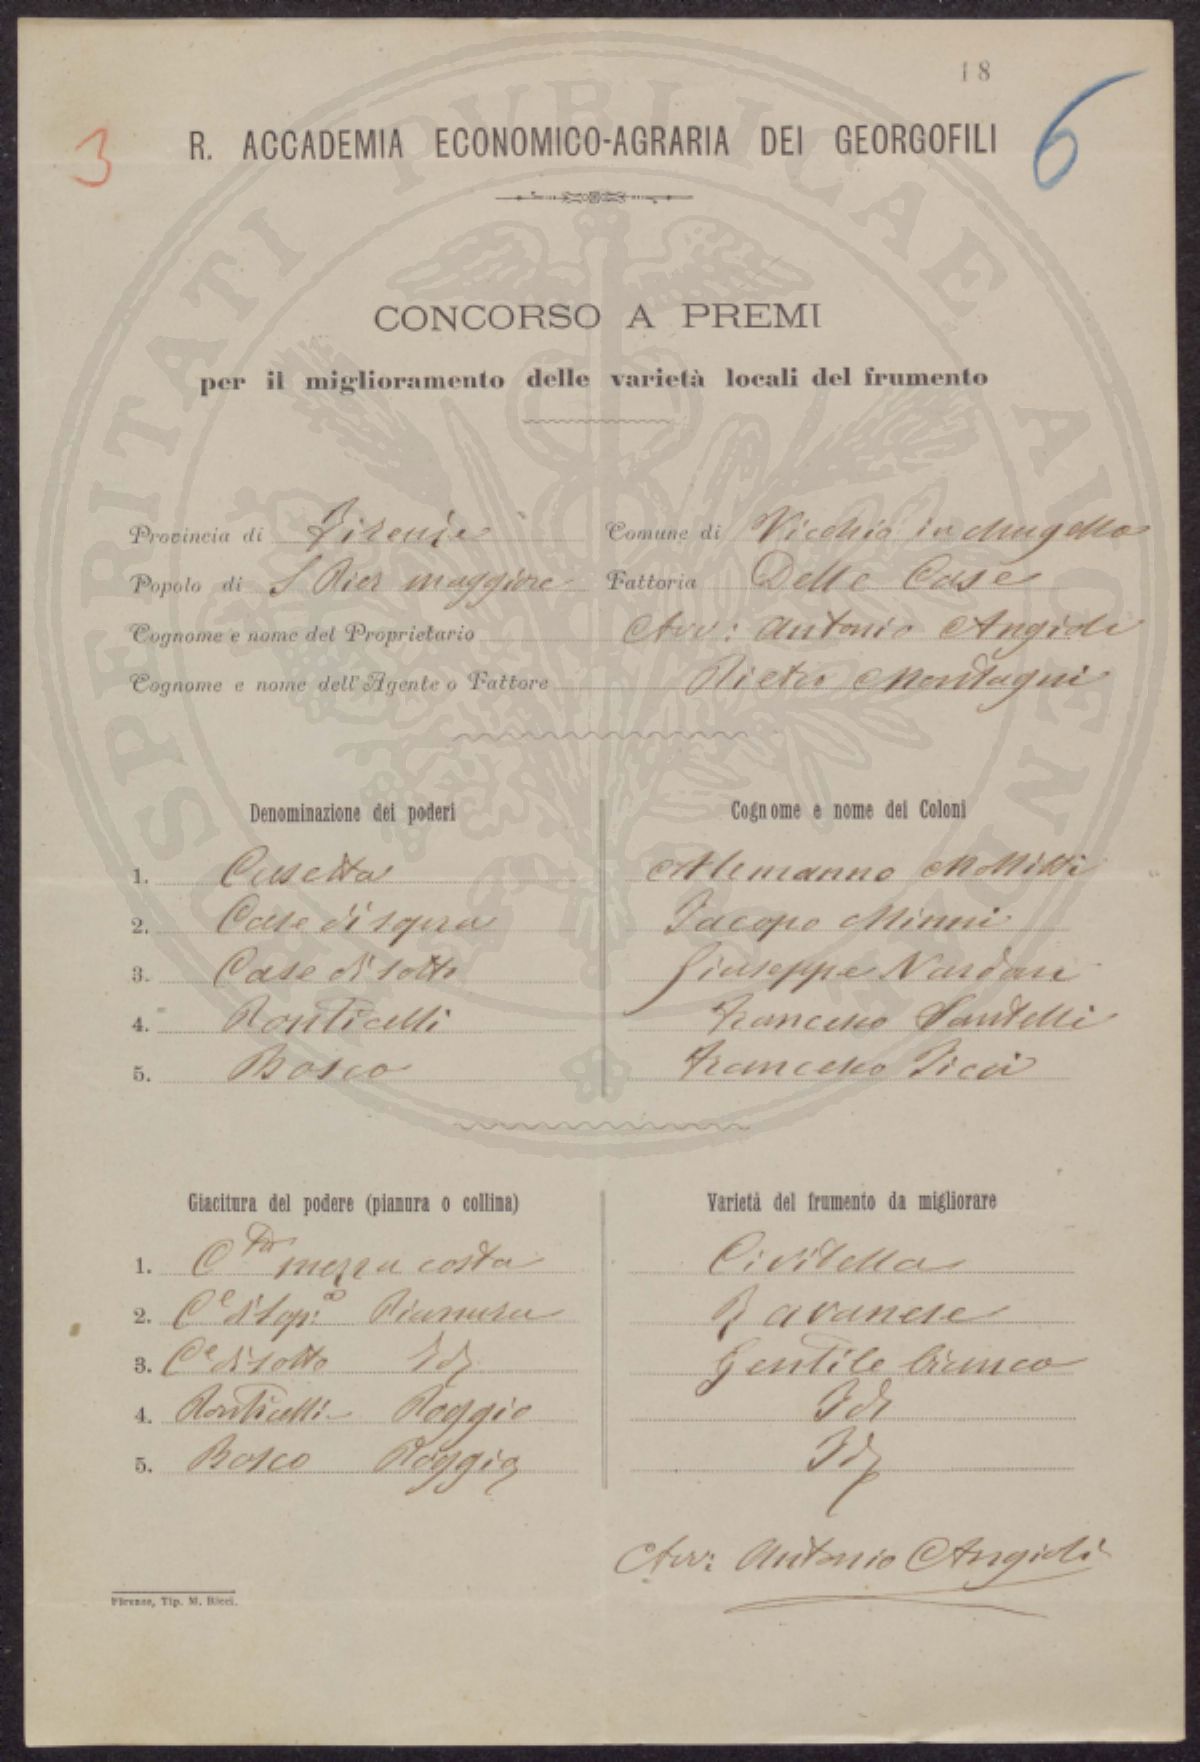 18
3
6
R. ACCADEMIA ECONOMICO-AGRARIA DEI GEORGOFILI
CONCORSO A PREMI
per il miglioramento delle varietà locali del frumento
Provincia di Firenze Comune di Vicchio in Mugello
Popolo di S Pier maggiore Fattoria Delle Case
Cognome e nome del Proprietario Avv: Antonio Angioli
Cognome e nome dell'Agente o Fattore Pietro Montagni
Denominazione dei poderi Cognome e nome dei Coloni
1. Casetta Alemanno
2. Case di sopra Jacopo Minni
3. Case di sotto Giuseppe Nardoni
4. Ponticelli Francesco Santelli
5. Bosco Francesco Picci
Giacitura del podere (pianura o collina) Varietà del frumento da migliorare
1. C.ta mezza costa Civitella
2. Ce di sop:a Pianura Ravanese
3. Ce di sotto Id Gentile bianco
4. Ponticelli - Poggio Id
5. Bosco Poggio Id
Avv: Antonio Angioli
Firenze, Tip. M. Ricci.
PROSPERITATI PVBLICAE AVGENDAE